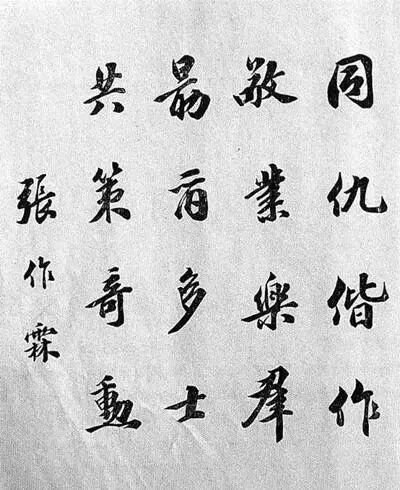 同仇偕作
敬業樂群
勗爾多士
共策奇勳
張作霖